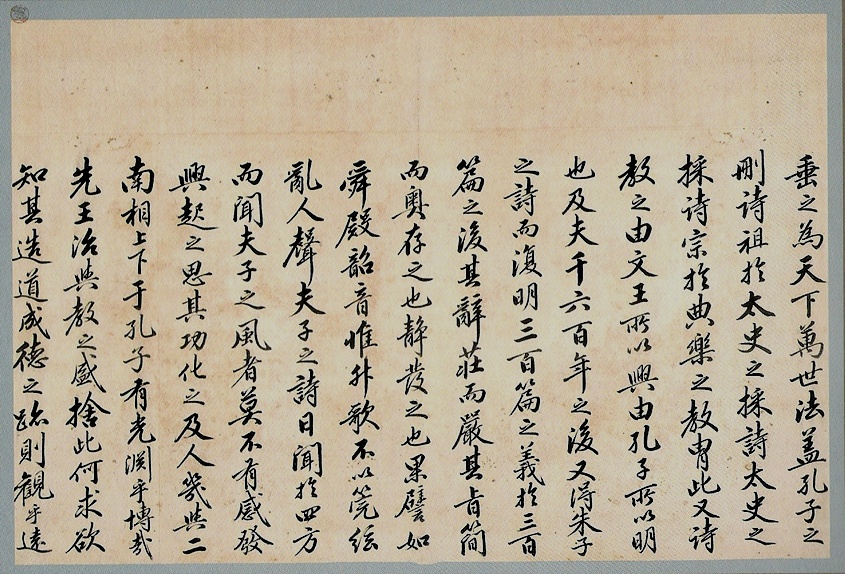 垂之為天下萬世法蓋孔子之
刪詩祖扵太史之採詩太史之
採詩宗扵典樂之教胄此又詩
教之由文王所以興由孔子所以明
也及夫千六百年之後又得朱子
之詩而復明三百篇之義扵三百
篇之後其辭莊而嚴其旨簡
而奧存之也靜發之也果譬如
舜殿韶音惟升歌不以筦絃
亂人聲夫子之詩日聞扵四方
而聞夫子之風者莫不有感發
興起之思其功化之及人幾與二
南相上下于孔子有光淵乎博哉
先王治與教之盛捨此何求欲
知其造道成德之跡則觀乎遠